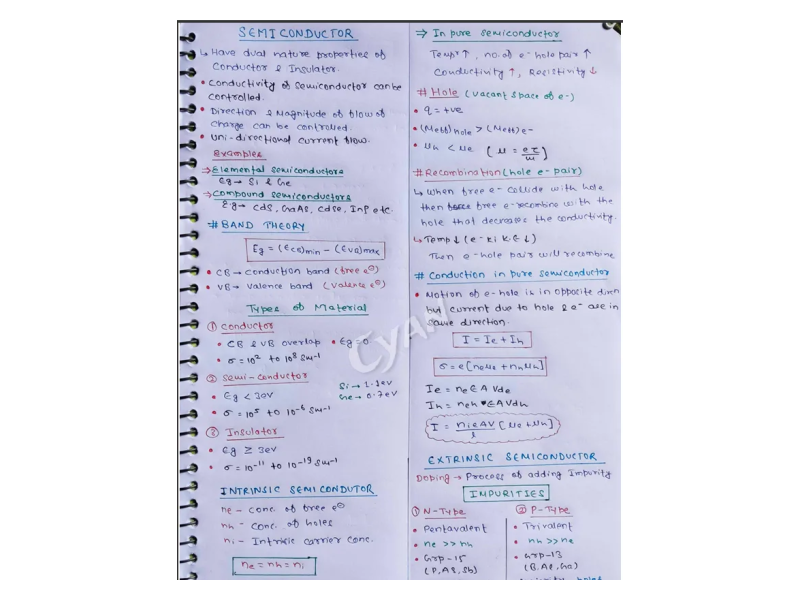 SEMICONDUCTOR
↳ Have dual nature properties of
Conductor & Insulator.
• Conductivity of Semiconductor can be
controlled.
• Direction & Magnitude of flow of
charge can be controlled.
• Uni-directional current flow.
Examples
→ Elemental semiconductors
Eg → Si & Ge
→ Compound semiconductors
Eg → CdS, GaAs, CdSe, InP etc.
# BAND THEORY
Eg = (ECB)min − (EVB)max
• CB → Conduction band (free e⊖)
• VB → Valence band (Valence e⊖)
Types of Material
① Conductor
• CB & VB overlap • Eg = 0
• σ = 10² to 10⁸ Sm⁻¹
② Semi-conductor
• Eg < 3eV
Si → 1.1eV
Ge → 0.7eV
• σ = 10⁵ to 10⁻⁶ Sm⁻¹
③ Insulator
• Eg ≥ 3eV
• σ = 10⁻¹¹ to 10⁻¹⁹ Sm⁻¹
INTRINSIC SEMICONDUTOR
ne − Conc. of free e⊖
nh − Conc. of holes
ni − Intrinsic carrier Conc.
ne = nh = ni
⇒ In pure semiconductor
Temp↑, no. of e⁻ hole pair ↑
Conductivity ↑, Resistivity ↓
# Hole (Vacant space of e⁻)
• q = +ve
• (Meff)hole > (Meff)e⁻
• μh < μe (μ = eτ/m)
# Recombination (hole e⁻ pair)
↳ When free e⁻ collide with hole
then free e⁻ recombine with the
hole that decreases the conductivity.
↳ Temp↓ (e⁻ ki K.E ↓)
Then e⁻ hole pair will recombine
# Conduction in pure semiconductor
• Motion of e⁻ hole is in opposite diren
but current due to hole & e⁻ are in
same direction.
I = Ie + Ih
σ = e[neμe + nhμh]
Ie = neEAVde
Ih = nhEAVdh
I = nieAV/l [μe + μh]
EXTRINSIC SEMICONDUCTOR
Doping → Process of adding Impurity
IMPURITIES
① N-Type
• Pentavalent
• ne >> nh
• Grp-15
(P, As, Sb)
② P-Type
• Trivalent
• nh >> ne
• Grp-13
(B, Al, Ga)
CYAN